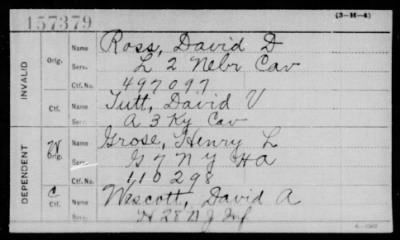 157379
(3—H—4)
INVALID
Orig. Name Ross, David D
Serv. L 2 Nebr Cav
Ctf. No. 497097
Ctf. Name Tutt, David V
Serv. A 3 Ky Cav
DEPENDENT
W Orig. Name Grose, Henry L
Serv. G 7 N Y H A
Ctf. No. 110298
C Ctf. Name Wescott, David A
Serv. H 28 N J Inf